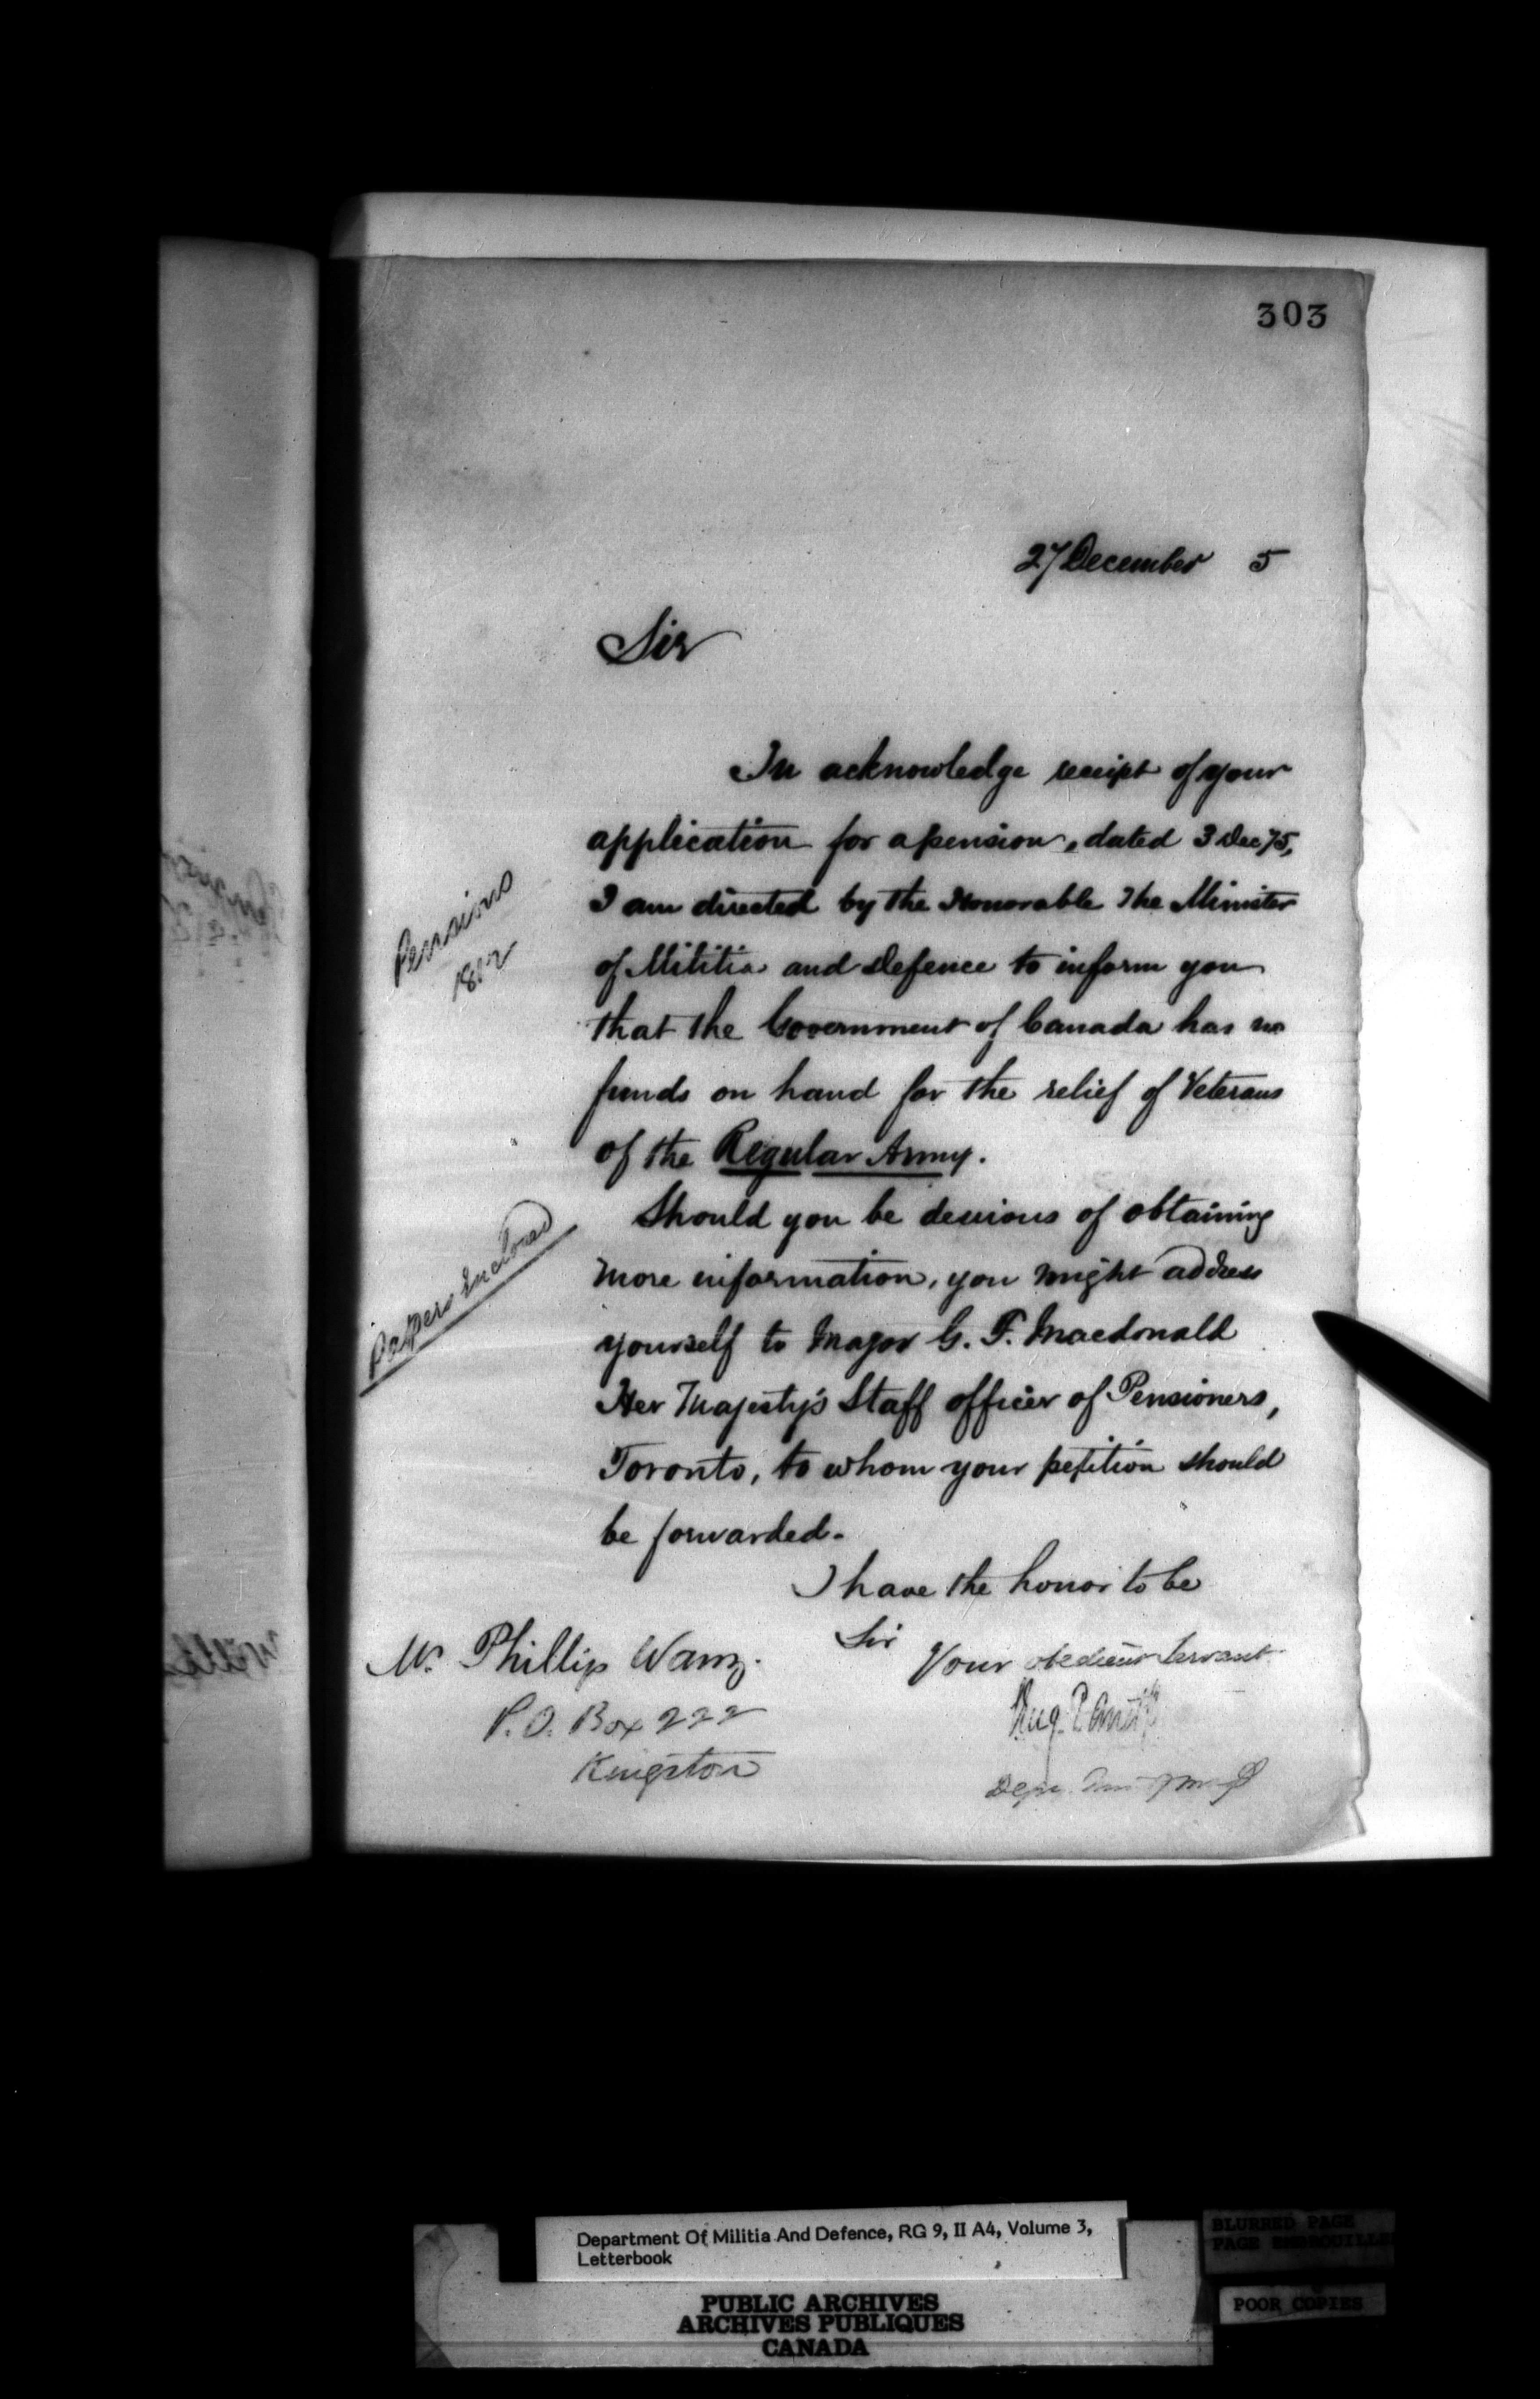 303
27 December 5
Sir
In acknowledge receipt of your
application for a pension, dated 3 Dec 75,
I am directed by the Honorable The Minister
of Militia and Defence to inform you
that the Government of Canada has no
funds on hand for the relief of Veterans
of the Regular Army.
Should you be desirous of obtaining
more information, you might address
yourself to Major G. F. Macdonald
Her Majesty's Staff officer of Pensioners,
Toronto, to whom your petition should
be forwarded.
I have the honor to be
Sir
Your obedient Servant
Pensions
1812
Papers Inclosed
Mr. Phillip
P.O. Box 222
Kingston
Department Of Militia And Defence, RG 9, II A4, Volume 3,
Letterbook
PUBLIC ARCHIVES
ARCHIVES PUBLIQUES
CANADA
BLURRED PAGE
PAGE
POOR COPIES